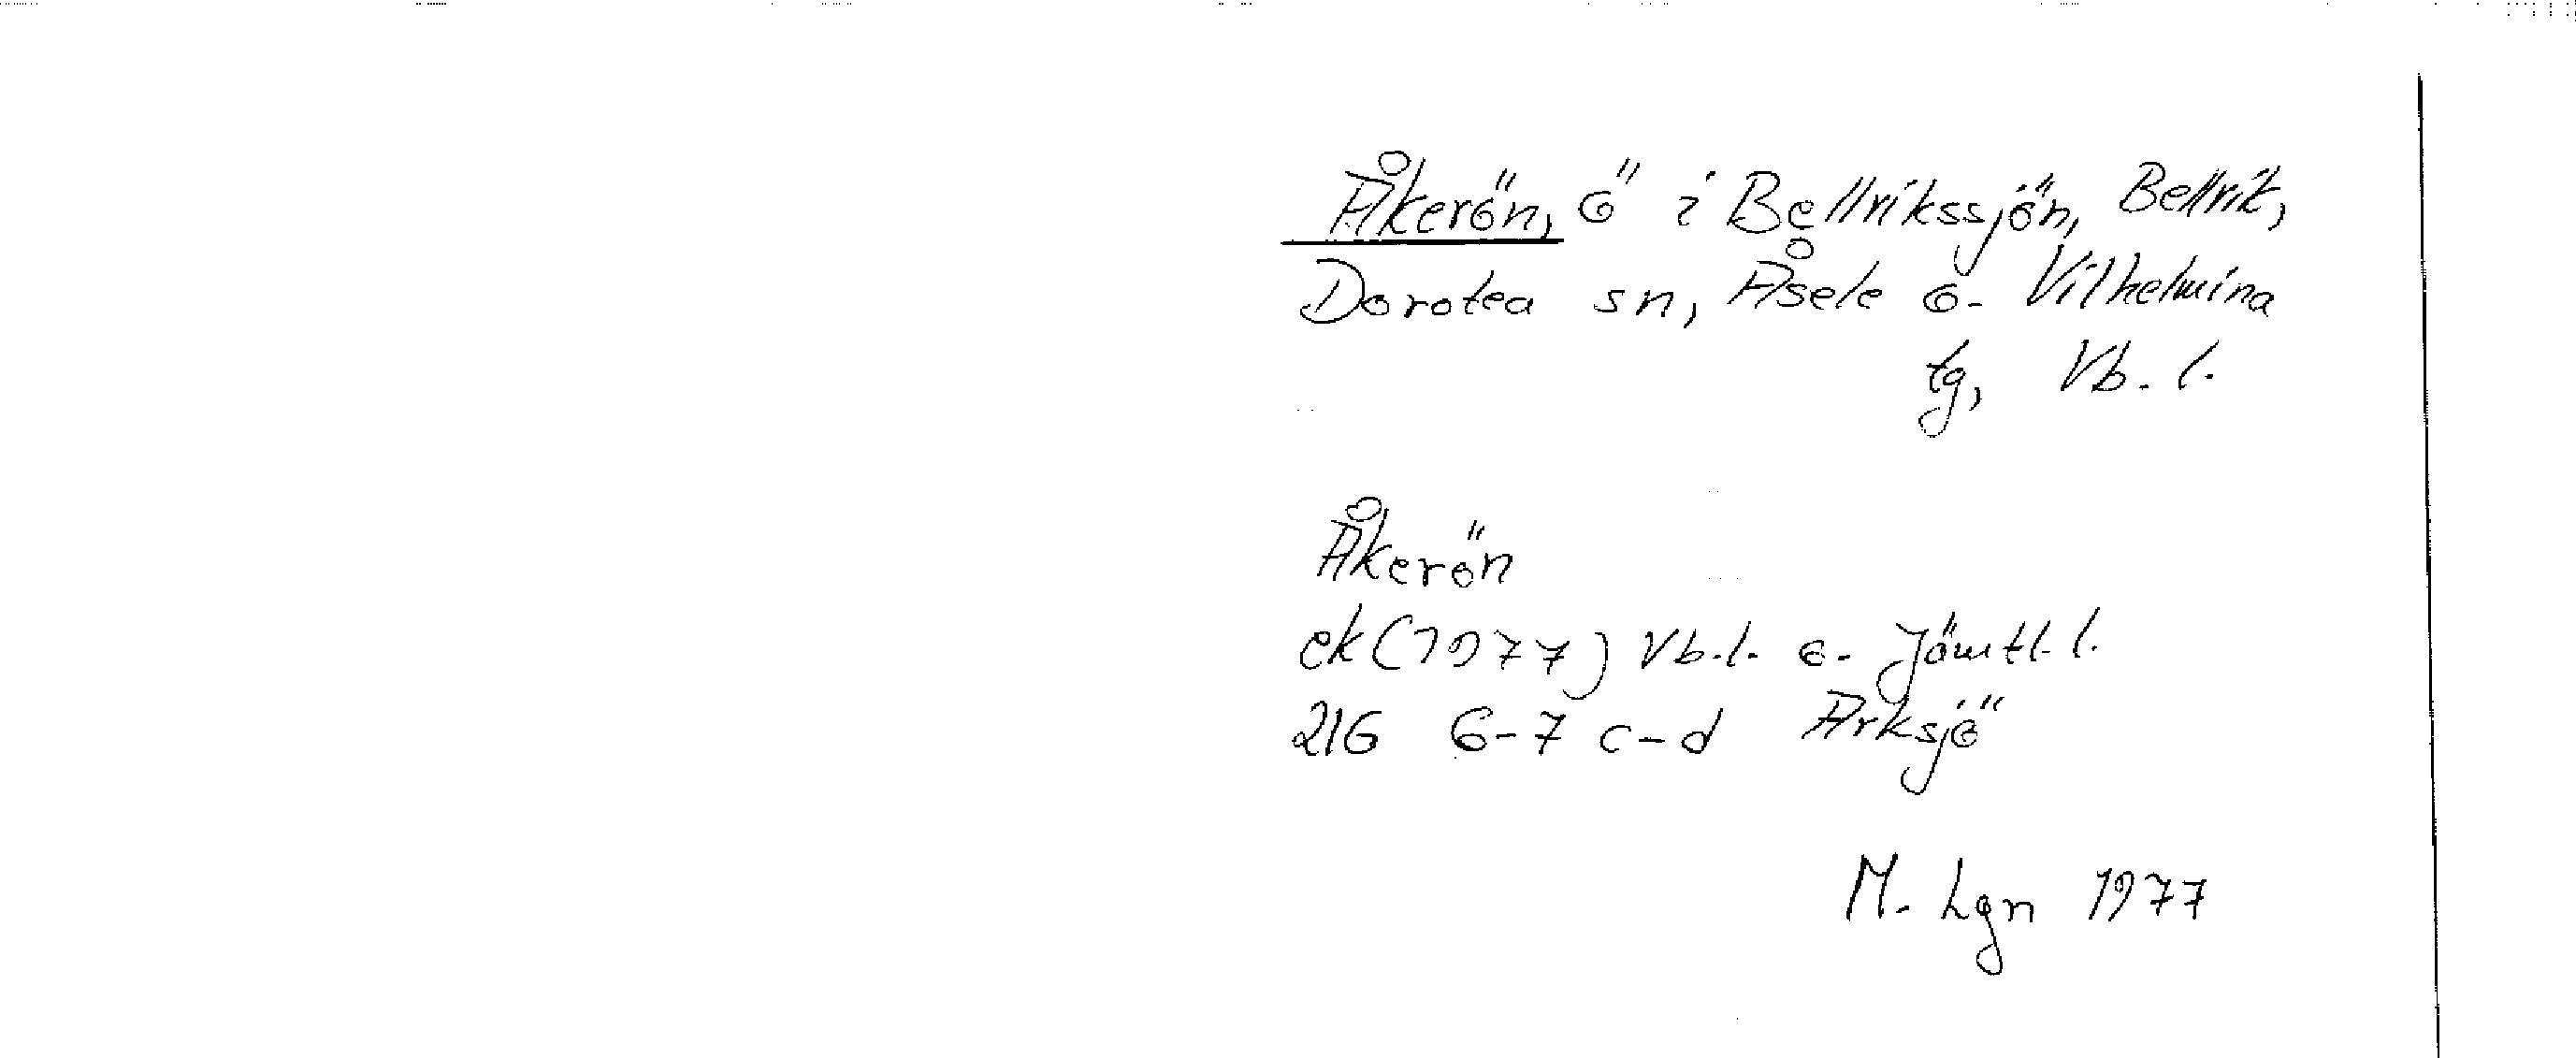 Åkerön, ö i Bellrikssjön, Bellrik,
Dorotea sn, Åsele o. Vilhelmina
tg, Vb. l.
Åkerön
ek (1977) Vb. l. o. Jämtl. l.
21G 6-7 c-d Arksjö
M. Lgn 1977